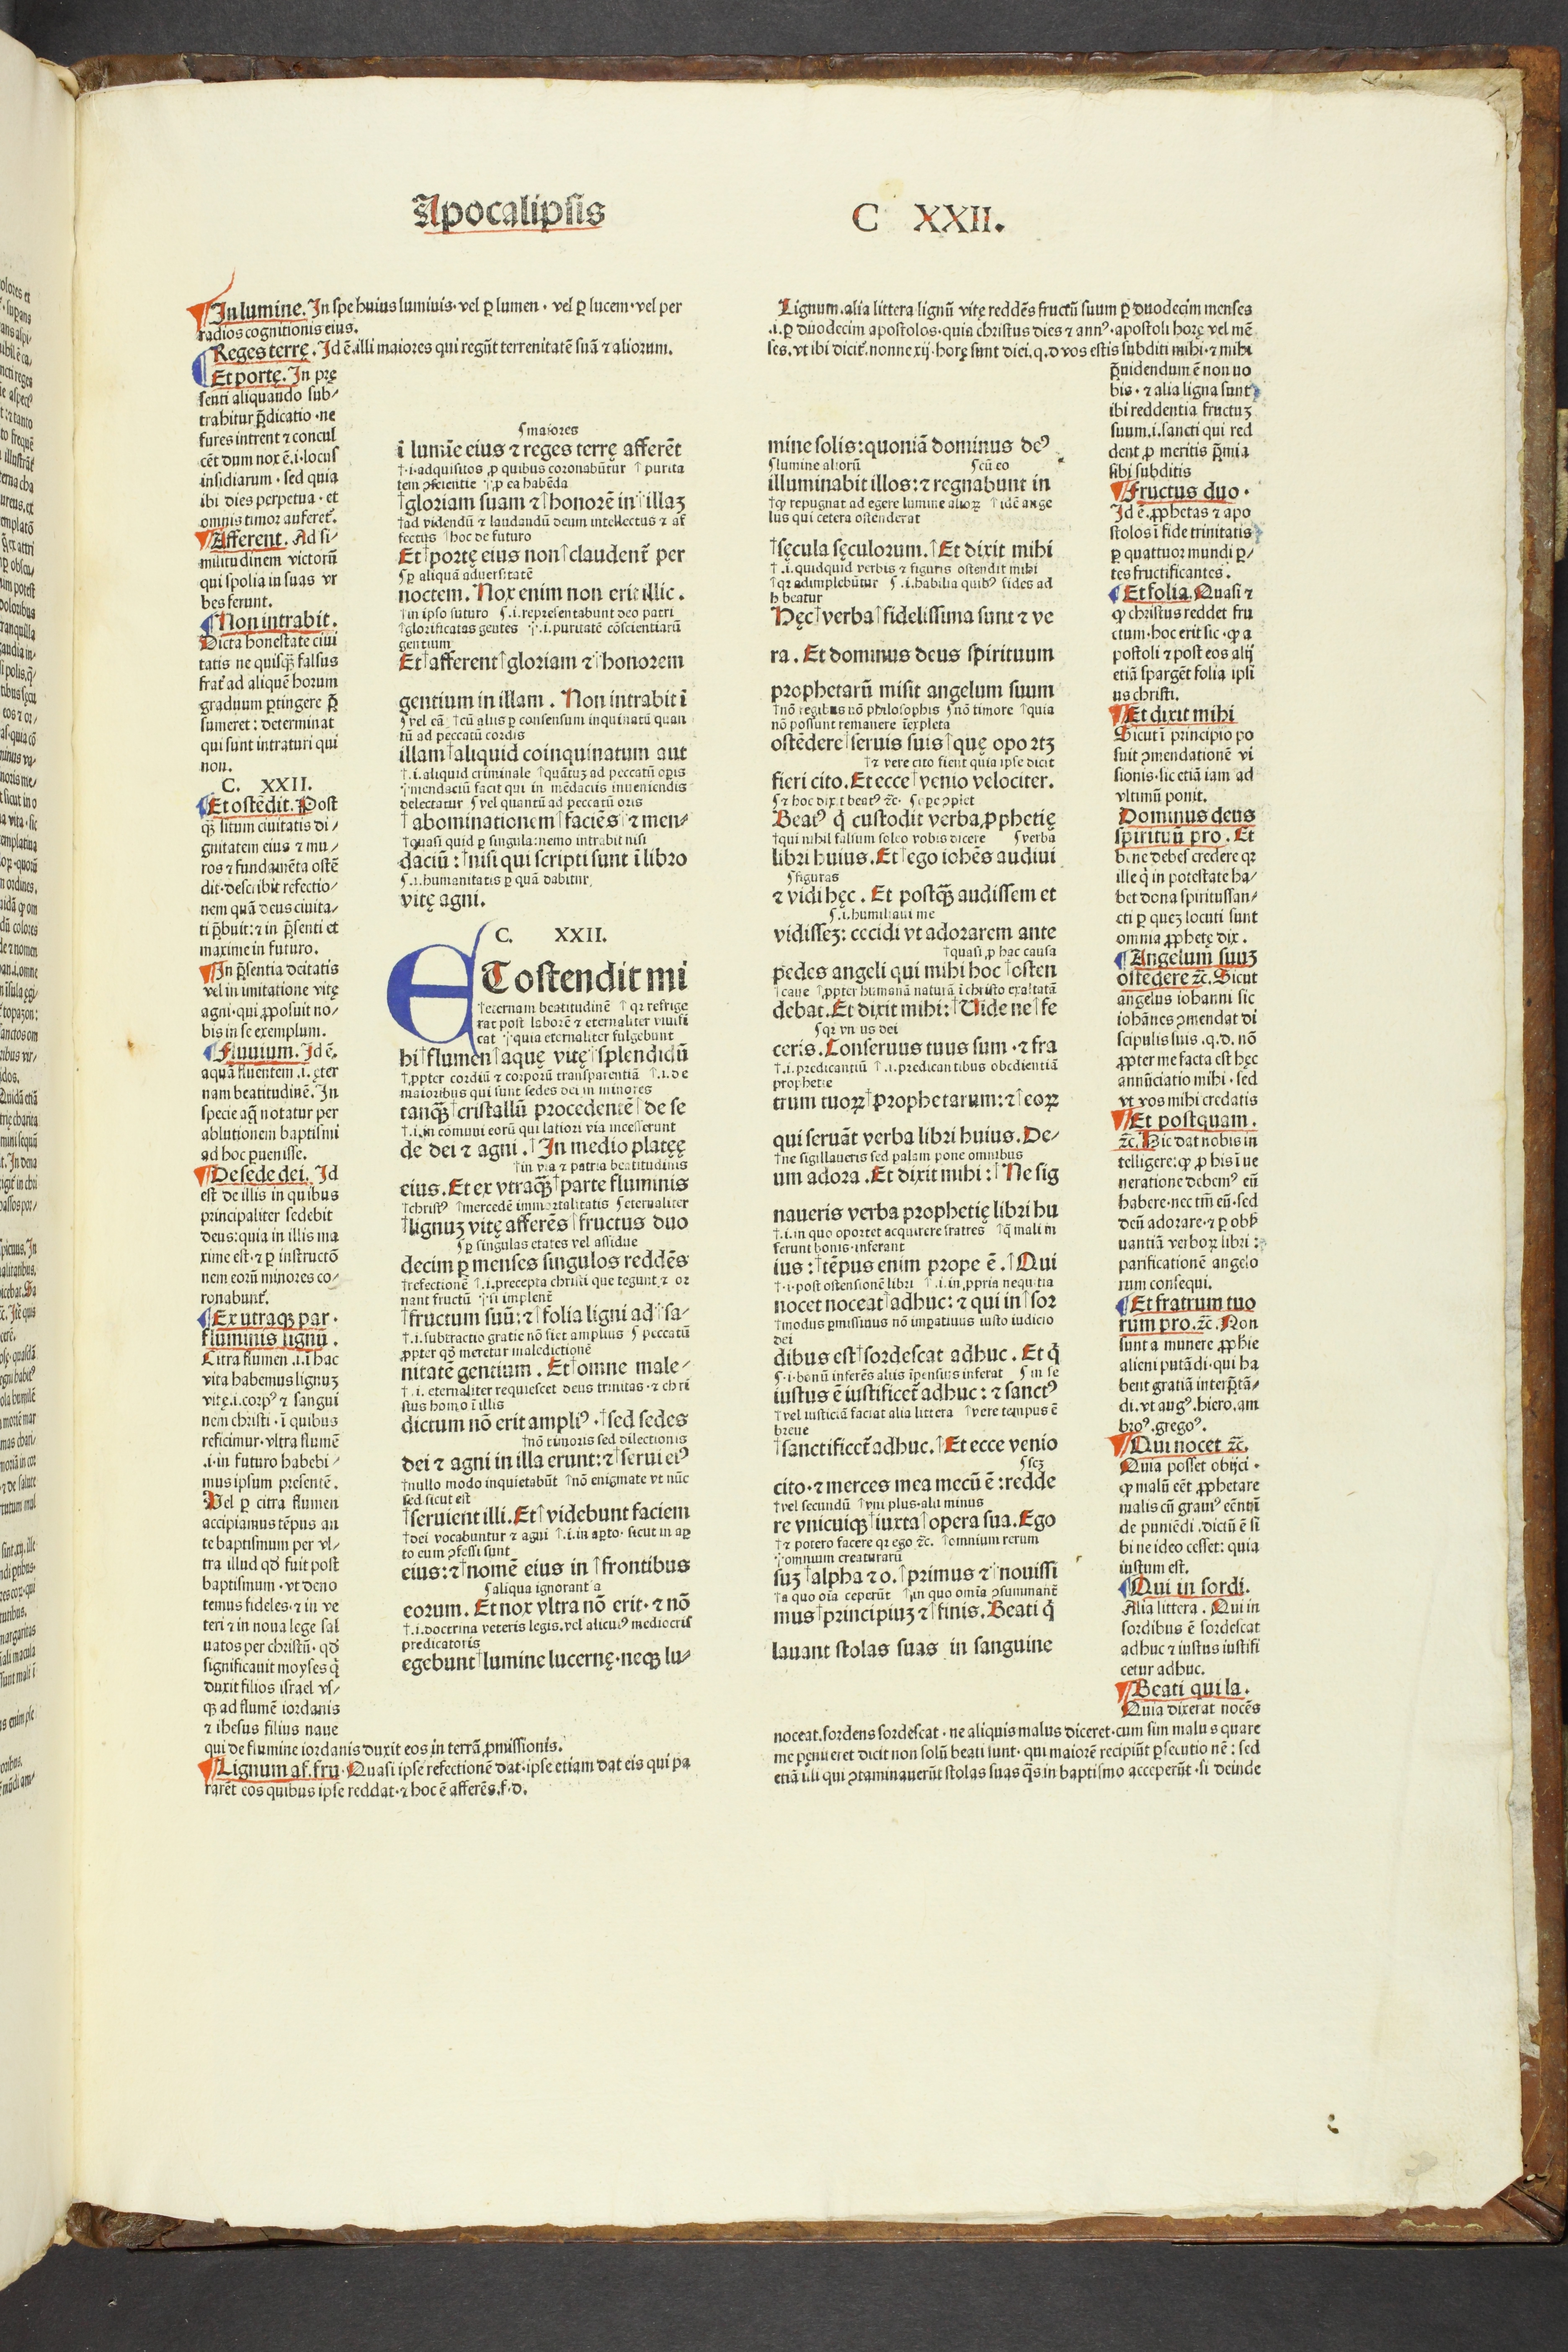 Apocalipsis
C XXII.
In lumine. In spe huius lumiuis· vel ꝑ lumen · vel ꝑ lucem· vel per
radios cognitionis eius.
Reges terrę. Id ē. illi maiores qui regūt terrenitatē suā ⁊ aliorum.
Et portę. In prę
senti aliquando sub/
trabitur p̄dicatio · ne
fures intrent ⁊ concul
cēt dum nox ē. i. locus
insidiarum · sed quia
ibi dies perpetua · et
omnis timor auferet᷑.
Afferent. Ad si/
militudinem victorū
qui spolia in suas vr
bes ferunt.
Non intrabit.
Dicta honestate ciui
tatis ne quisq̄ȝ falsus
frat᷑ ad aliquē horum
graduum ꝑtingere p̄
sumeret: determinat
qui sunt intraturi qui
non.
C. XXII.
Et ostēdit. Post
q̄ȝ situm ciuitatis di/
gnitatem eius ⁊ mu/
ros ⁊ fundamēta ostē
dit· describit refectio/
nem quā deus ciuita/
ti p̄buit: ⁊ in p̄senti et
maxime in futuro.
In p̄sentia deitatis
vel in imitatione vitę
agni· qui ꝓposuit no/
bis in se exemplum.
Fluuium. Id ē.
aquā fluentem .i. ęter
nam beatitudinē. In
specie aq̄ notatur per
ablutionem baptismi
ad hoc puenisse.
De sede dei. Id
est de illis in quibus
principaliter sedebit
deus: quia in illis ma
xime est· ⁊ ꝑ instructō
nem eorū minores co/
ronabunt᷑.
Ex utraqȝ par·
fluminis lignū.
Citra flumen .i. ī hac
vita habemus lignuȝ
vitę. i. corpꝰ ⁊ sangui
nem christi · ī quibus
reficimur· vltra flumē
.i· in futuro habebi/
mus ipsum presentē.
Vel ꝑ citra flumen
accipiamus tēpus an
te baptismum per vl/
tra illud qđ fuit post
baptismum · vt deno
temus fideles· ⁊ in ve
teri ⁊ in noua lege sal
uatos per christū· qđ
significauit moyses q̇
duxit filios israel vs/
qȝ ad flumē iordanis
⁊ ihesus filius naue
qui de flumine iordanis duxit eos in terrā ꝓmissionis.
Lignum af. fru· Quasi ipse refectionē dat· ipse etiam dat eis qui pa
rarēt eos quibus ipse reddat· ⁊ hoc ē afferēs. f· d.
ſ maiores
ī lumīe eius ⁊ reges terrę afferēt
†·i·adquisitos ꝓ quibus coronabūtur † purita
tem ɔscientie ⁘ ꝓ ea habēda
†gloriam suam ⁊ †honorē in ⁘illaȝ
†ad videndū ⁊ laudandū deum intellectus ⁊ af
fectus †hoc de futuro
Et †portę eius non †claudent᷑ per
ſꝑ aliquā aduersitatē
noctem. Nox enim non erit illic.
†in ipso futuro ſ.i.representabunt deo patri
†glorificatas gentes ⁘.i. puritatē cōscientiarū
gentium
Et †afferent †gloriam ⁊ ⁘honorem
gentium in illam . Non intrabit ī
ſvel eā: †cū aliis ꝑ consensum inquinatū quan
tū ad peccatū cordis
illam †aliquid coinquinatum aut
†.i.aliquid criminale †quātuȝ ad peccatū oꝑis
⁘mendaciū facit qui in mēdaciis inueniendis
delectatur ſvel quantū ad peccatū oris
†abominationem †faciēs ⁘⁊ men/
†quasi quid ꝑ singula: nemo intrabit nisi
daciū: †nisi qui scripti sunt ī libro
ſ.i.humanitatis ꝑ quā dabitur
vitę agni.
C. XXII.
ET ostendit mi
†eternam beatitudinē †qꝛ refrige
rat post laborē ⁊ eternaliter viuifi
cat ⁘quia eternaliter fulgebunt
hi †flumen †aquę vitę ⁘splendidū
†.ꝓpter cordiū ⁊ corporū transparentiā †.i.de
maioribus qui sunt sedes dei in minores
tanq̄ȝ †cristallū procedentē †de se
†.i.in cōmuni eorū qui latiori via incesserunt
de dei ⁊ agni .†In medio platęę
†in via ⁊ patria beatitudinis
eius. Et ex vtraq̄ȝ †parte fluminis
†christꝰ †mercedē immortalitatis ſeternaliter
†lignuȝ vitę afferēs †fructus duo
ſꝑ singulas etates vel assidue
decim ꝑ menses singulos reddēs
†refectionē †.i.precepta christi que tegunt ⁊ or
nant fructū ⁘ii implent᷑
†fructum suū: ⁊ †folia ligni ad ⁘sa/
†.i.subtractio gratie nō fiet amplius ſ peccatū
ꝓpter qđ meretur maledictionē
nitatē gentium . Et †omne male/
†.i. eternaliter requiescet deus trinitas· ⁊ chri
stus homo ī illis
dictum nō erit ampliꝰ · †sed sedes
†nō timoris sed dilectionis
dei ⁊ agni in illa erunt: ⁊ †serui eiꝰ
†nullo modo inquietabūt †nō enigmate vt nūc
sed sicut est
†seruient illi. Et †videbunt faciem
†dei vocabuntur ⁊ agni †.i.in aꝑto· sicut in aꝑ
to eum ɔfessi sunt
eius: ⁊ †nomē eius in †frontibus
ſaliqua ignorantia
eorum. Et nox vltra nō erit· ⁊ nō
†.i.doctrina veteris legis. vel alicuiꝰ mediocris
predicatoris
egebunt †lumine lucernę· neqȝ lu/
Lignum. alia littera lignū vitę reddēs fructū suum ꝑ duodecim menses
.i.ꝑ duodecim apostolos· quia christus dies ⁊ annꝰ· apostoli horę vel mē
ses. vt ibi dicit᷑. nonne xij· horę sunt diei. q. d vos estis subditi mihi· ⁊ mihi
mine solis: quoniā dominus deꝰ
ſlumine aliorū ſcū eo
illuminabit illos: ⁊ regnabunt in
†qꝫ repugnat ad egere lumine alioꝝ †idē ange
lus qui cetera ostenderat
†sęcula sęculorum. †Et dixit mihi
†.i.quidquid verbis ⁊ figuris ostendit mihi
†qꝛ adimplebūtur ſ.i.habilia quibꝰ fides ad
h̄beatur
Hęc †verba †fidelissima sunt ⁊ ve
ra . Et dominus deus spirituum
prophetarū misit angelum suum
†nō regibus nō philosophis ſnō timore †quia
nō possunt remanere īexpleta
ostēdere †seruis suis †quę oportȝ
†⁊ vere cito fient quia ipse dicit
fieri cito. Et ecce †venio velociter.
ſ⁊ hoc dixit beatꝰ ⁊c·
Beatꝰ q̇ custodit verba ꝓphetię
†qui nihil falsum soleo vobis dicere ſverba
libri huius. Et †ego iohēs audiui
ſfiguras
⁊ vidi hęc. Et postq̄ȝ audissem et
ſ.i.humiliaui me
vidisseȝ: cecidi vt adorarem ante
†quasi ꝓ hac causa
pedes angeli qui mihi hoc †osten
†caue †ꝓpter humanā naturā ī christo exaltatā
debat. Et dixit mihi: †Vide ne †fe
ſqꝛ vnius dei
ceris. Conseruus tuus sum · ⁊ fra
†.i.predicantiū †.i.predicantibus obedientiā
prophetie
trum tuoꝝ †prophetarum: ⁊ †eoꝝ
qui seruāt verba libri huius. De/
†ne sigillaueris sed palam pone omnibus
um adora . Et dixit mihi: †Ne sig
naueris verba prophetię libri hu
†.i.in quo oportet acquirere fratres †q̄ mali in
ferunt bonis· inferant
ius: †tēpus enim prope ē. †Qui
†·i·post ostensionē libri †.i.in ꝓpria nequitia
nocet noceat †adhuc: ⁊ qui in †sor
†modus ꝑmissiuus nō imꝑatiuus iusto iudicio
dei
dibus est †sordescat adhuc . Et q̇
ſ·i·bonū inferēs aliis īpensius inferat ſin se
iustus ē iustificet᷑ adhuc: ⁊ sanctꝰ
†vel iusticiā faciat alia littera †vere tempus ē
breue
†sanctificet᷑ adhuc. †Et ecce venio
ſseȝ
cito· ⁊ merces mea mecū ē: redde
†vel secundū †vni plus· alii minus
re vnicuiqȝ †iuxta †opera sua. Ego
†⁊ potero facere qꝛ ego ⁊c. †omnium rerum
⁘omnium creaturarū
suȝ †alpha ⁊ o. †primus ⁊ ⁘nouissi
†a quo oīa ceperūt †in quo omīa ɔsummant᷑
mus †principiuȝ ⁊ †finis. Beati q̇
lauant stolas suas in sanguine
p̄uidendum ē non uo
bis · ⁊ alia ligna sunt
ibi reddentia fructuȝ
suum .i. sancti qui red
dent ꝓ meritis p̄mia
sibi subditis
Fructus duo·
Id ē. ꝓphetas ⁊ apo
stolos ī fide trinitatis
ꝑ quattuor mundi ꝑ/
tes fructificantes.
Et folia. Quasi ⁊
qꝫ christus reddet fru
ctum· hoc erit sic · qꝫ a
postoli ⁊ post eos alij
etiā spargēt folia ipsī
us christi.
Et dixit mihi
Sicut ī principio po
suit ɔmendationē vi
sionis· sic etiā iam ad
vltimū ponit.
Dominus deus
spirituū pro. Et
bene debes credere qꝛ
ille q̇ in potestate ha/
bet dona spiritussan/
cti ꝑ queȝ locuti sunt
omnia ꝓphetę dix.
Angelum suuȝ
ostēdere ⁊c. Sicut
angelus iohanni sic
iohānes ɔmendat di
scipulis suis .q.d. nō
ꝓpter me facta est hęc
annūciatio mihi · sed
vt vos mihi credatis
Et postquam.
⁊c. Hic dat nobis in
telligere: qꝫ ꝓ his ī ue
neratione debemꝰ eū
habere· nec tm̄ eū· sed
deū adorare· ⁊ ꝑ obs̄
uantiā verboꝝ libri:
parificationē angelo
rum consequi.
Et fratrum tuo
rum pro. ⁊c. Non
sunt a munere ꝓphīe
alieni putādi· qui ha
bent gratiā interp̄tā/
di. vt augꝰ. hiero. am
broꝰ. gregoꝰ.
Qui nocet ⁊c.
Quia posset obijci ·
qꝫ malū eēt ꝓphetare
malis cū
de puniēdi . dictū ē si
bi ne ideo cesset: quia
iustum est.
Qui in sordi.
Alia littera . Qui in
sordibus ē sordescat
adhuc ⁊ iustus iustifi
cetur adhuc.
Beati qui la.
Quia dixerat nocēs
noceat. sordens sordescat · ne aliquis malus diceret· cum sim malus quare
me pęniteret dicit non solū beati sunt· qui maiorē recipiūt ꝑsecutionē: sed
etiā illi qui ɔtaminauerūt stolas suas q̄s in baptismo acceperūt · si deinde